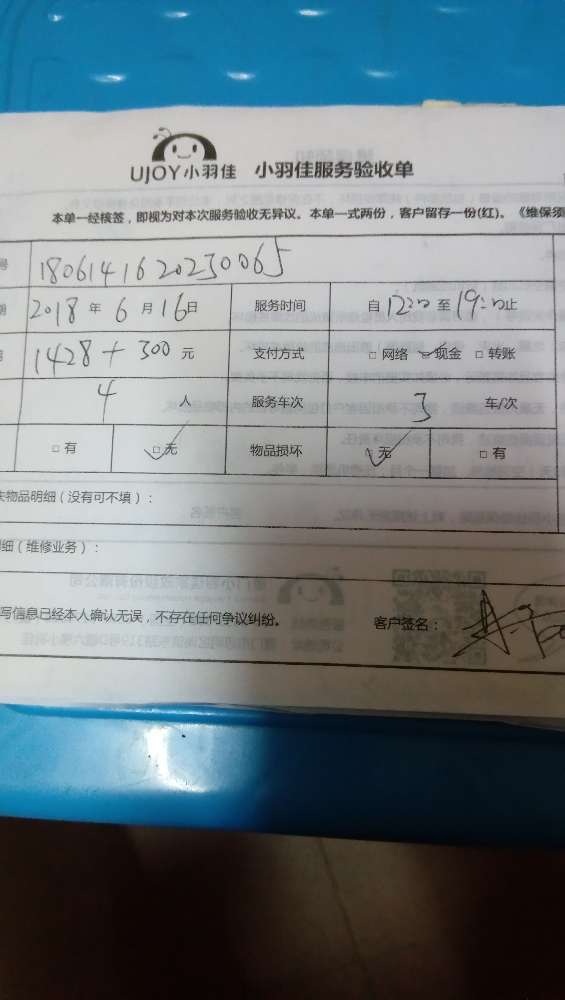 UJOY小羽佳 小羽佳服务验收单
本单一经核签，即视为对本次服务验收无异议。本单一式两份，客户留存一份(红)。《维保须
号 1806141620230065
2018年6月16日 服务时间 自12:00至19:00止
1428+300元 支付方式 □网络 □现金 □转账
4人 服务车次 3车/次
□有 □无 物品损坏 □无 □有
物品明细（没有可不填）：
细（维修业务）：
写信息已经本人确认无误，不存在任何争议纠纷。 客户签名：